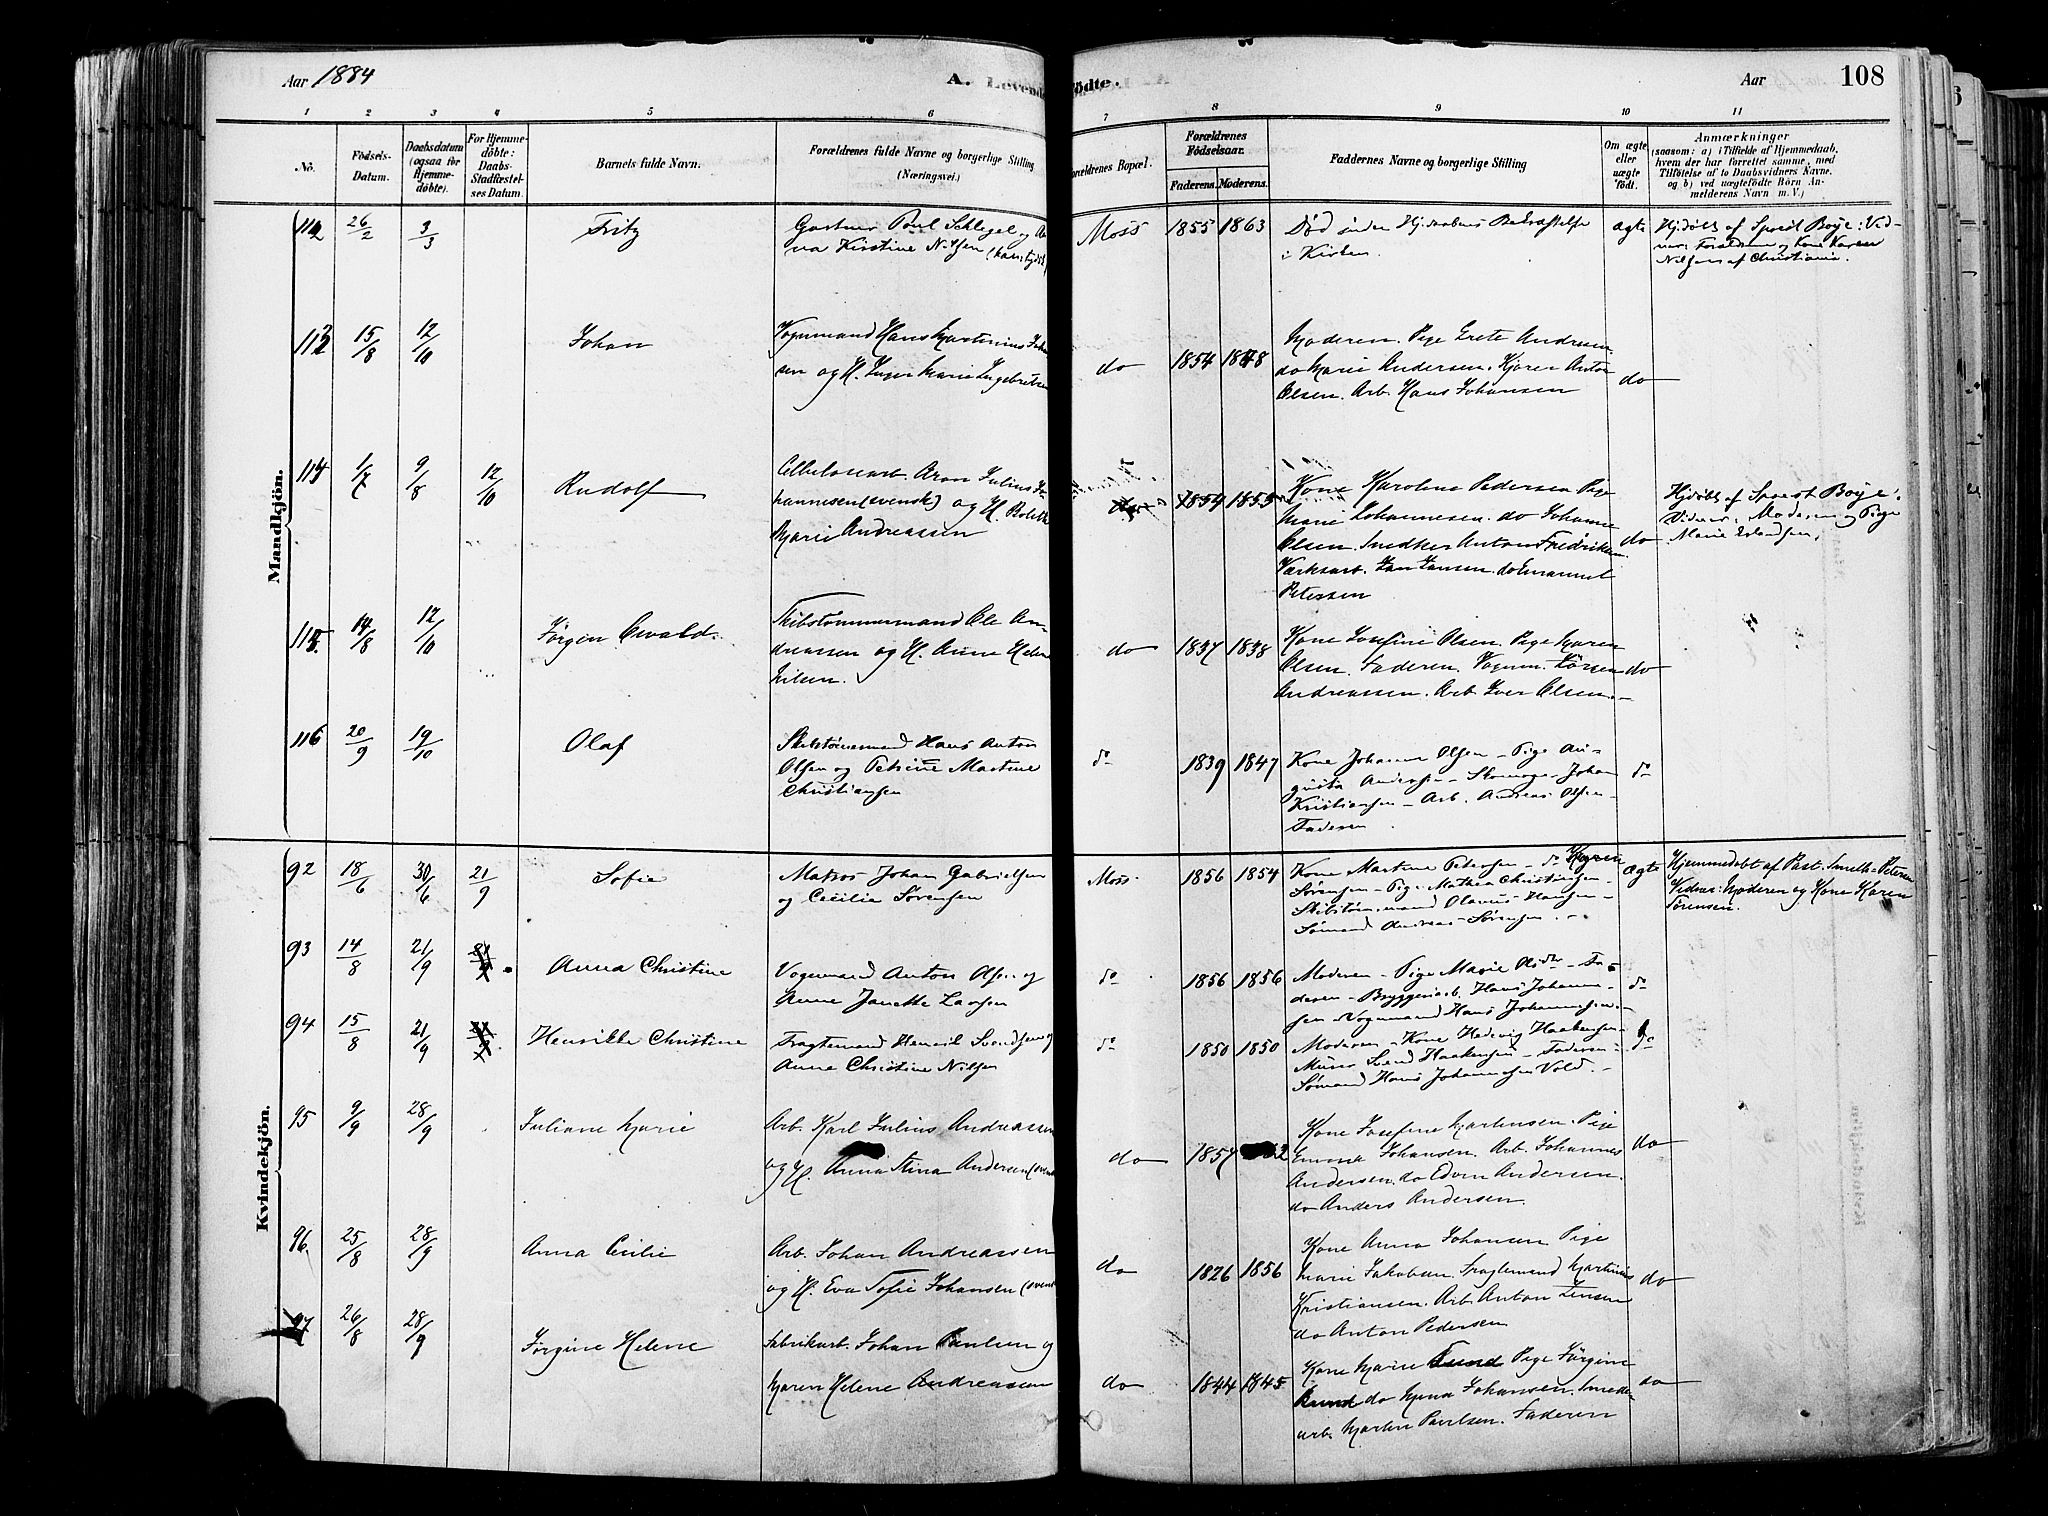 Aar 1884
A. Levende Födte.
Aar
108
1 2 3 4 5 6 7 8 9 10 11
No.
Födsels-
Datum.
Daabsdatum
(ogsaa for
Hjemme-
döbte).
For Hjemme-
döbte:
Daabs-
Stadfæstel-
ses Datum.
Barnets fulde Navn.
Forældrenes fulde Navne og borgerlige Stilling
(Næringsvei.)
Forældrenes
Födselsaar.
Faderens. Moderens.
Faddernes Navne og borgerlige Stilling
Om ægte
eller
uægte
födt.
Anmærkninger
(saasom: a) i Tilfælde af Hjemmedaab,
hvem der har forrettet samme, med
Tilföielse af to Daabsvidners Navne.
og b) ved uægtefödte Börn An-
melderens Navn m. V.)
Mandkjön.
26/2 3/3 Fritz
Gartner Paul Schlegel og An
na Kirstine Nilsen
Moss 1855 1863
Død inden Hj.daabens Bekræftelse
i Kirken.
ægte
Hjdøbt af Sprest Boye: Vid-
ner: Forældrene og Kone Karen
Nilsen af Christiania.
113 15/8 12/10 Johan
Vognmand Hans Martinius Johan
sen og H. Inger Marie Ingebretsen
do 1854 1848
Moderen. Pige Grete Andersen.
do Marie Andersen. Kjører Anton
Olsen. Arb. Hans Johansen
do
114 1/7 9/8 12/10 Rudolf
Cellulosearb. Aron Julius Jo
hannesen (svensk) og H. Bolette
Marie Andreassen
1854 1855
Kone Karoline Pedersen Pige
Marie Johannesen. do Johanne
Olsen. Snedker Anton Fredriksen.
Værksarb. Jan Jansen. do Emanuel
Petersen
do
Hjdøbt af Sprest Boye:
Vidner: Moderen og Pige
Marie
115 14/8 12/10 Jørgen Ewald.
Skibstømmermand Ole An-
dreassen og H. Anne Helene
Nilsen.
do 1837 1838
Kone Josefine Olsen. Pige Maren
Olsen. Faderen. Vognm. Jörgen
Andreassen. Arb. Iver Olsen.
do
116 20/9 19/10 Olaf
Skibstømmermand Hans Anton
Olsen og Petrine Martine
Christiansen
do 1839 1847
Kone Johanne Olsen – Pige Au-
gusta Andersen – Skomager Johan
Kristiansen – Arb. Andreas Olsen –
Faderen.
do
Kvindekjön.
92 18/6 30/6 21/9 Sofie
Matros Johan Gabrielsen
og Cecilia Sørensen
Moss 1856 1854
Kone Martine Petersen – do Karen
Sørensen – Pige Mathea Christiansen –
Skibstømmermand Olavus Hansen –
Sømand Andreas Sørensen.
ægte
Hjemmedøbt af Past. Smelt-Petersen
Vidner: Moderen og Kone Karen
Sørensen.
93 14/8 21/9 Anna Christine
Vognmand Anton Olsen og
Anne Janette Larsen
do 1856 1856
Moderen – Pige Marie Olsen – Fa-
deren – Bryggeriarb. Hans Johanne-
sen – Vognmand Hans Johannesen.
do
94 15/8 21/9 Henrikke Christine
Fragtemand Henrik Svendsen og
Anne Christine Nilsen
do 1850 1850
Moderen – Kone Hedevig Haakensen –
Murer Svend Haakensen – Faderen –
Sømand Hans Johannesen Vold.
do
95 9/9 28/9 Juliane Marie
Arb. Karl Julius Andreassen
og H. Anna Stina Andersen
do 1857
Kone Josefine Martensen. Pige
Emma Johansen. Arb. Johannes
Andersen. do Edvin Andersen.
do Anders Andersen.
do
96. 25/8 28/9 Anna Cecilie
Arb. Johan Andreassen
og H. Eva Sofie Johansen
do 1826 1856
Kone Anna Johansen Pige
Marie Jakobsen. Fragtemand Martinius
Kristiansen. Arb. Anton Jensen
do Anton Pedersen
do
97 26/8 28/9 Jørgine Helene
Fabrikarb. Johan Paulsen og
Maren Helene Andreassen
do 1844 1845
Kone Marie Lund Pige Jörgine
Lund do Anna Johansen. Smede-
arb. Martin Paulsen. Faderen
do